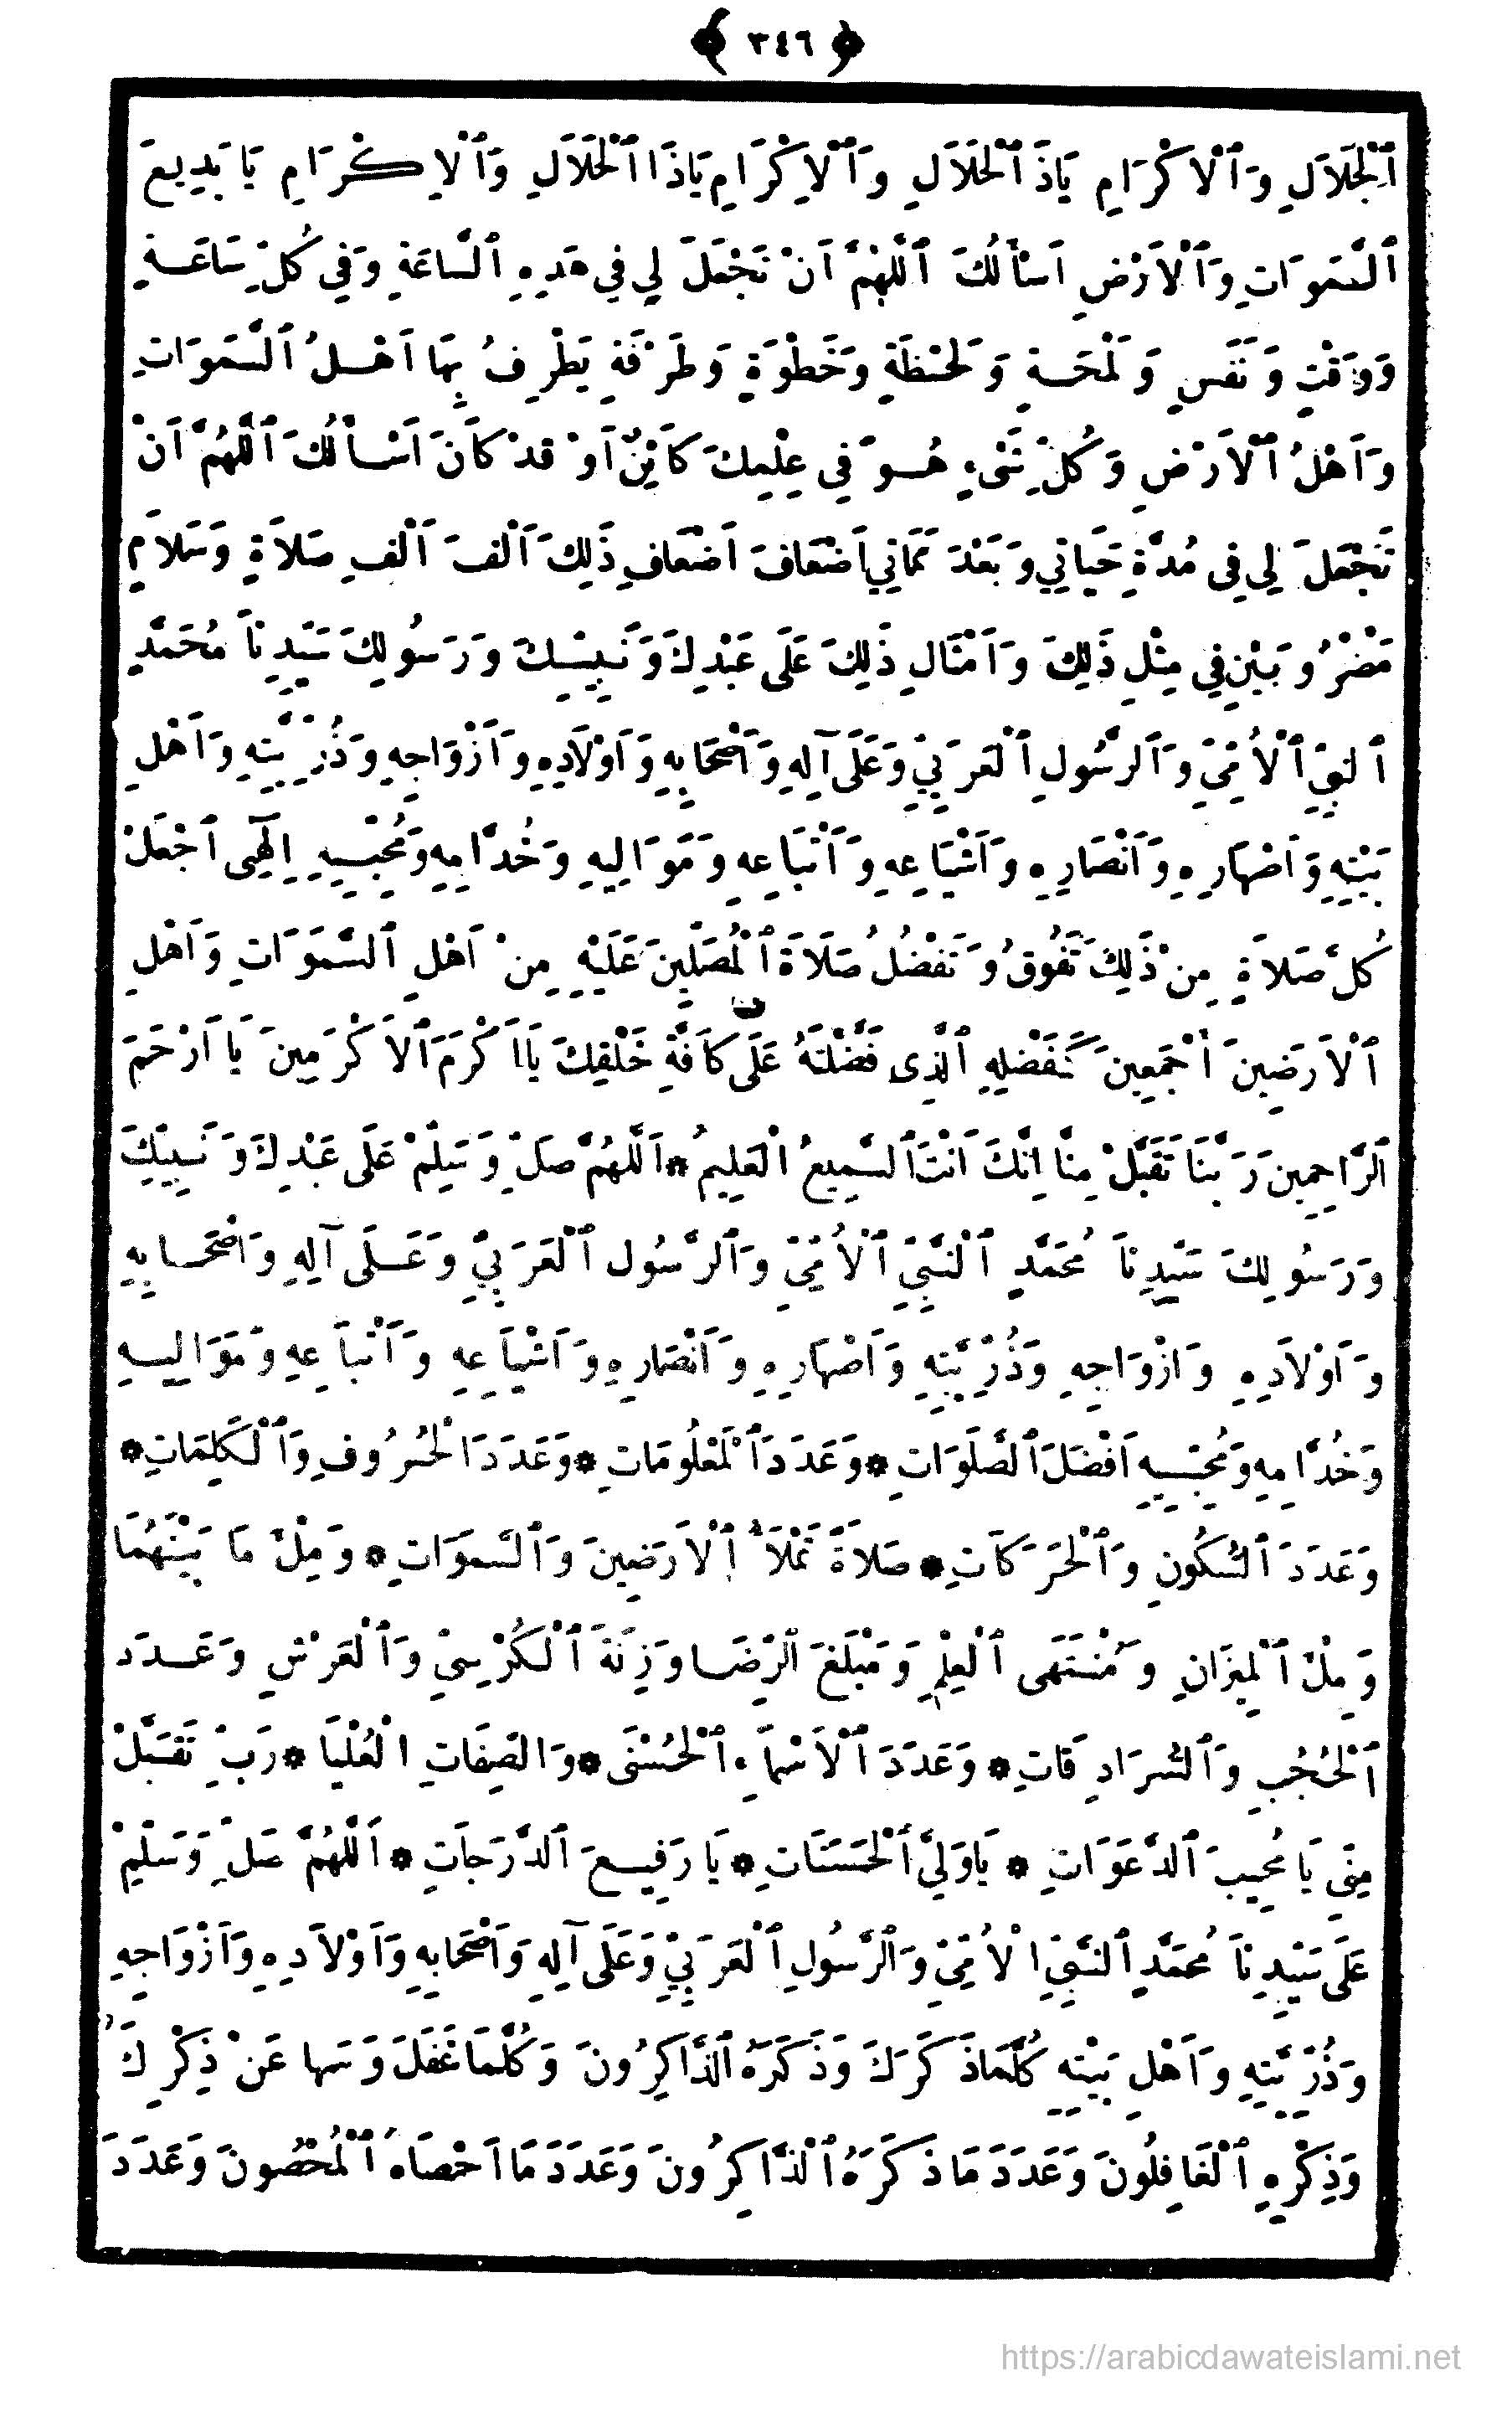 ﴿ ٣٤٦ ﴾
ٱلْجَلَالِ وَٱلْاِكْرَامِ يَاذَ ٱلْجَلَالِ وَٱلْاِكْرَامِ يَاذَا ٱلْجَلَالِ وَٱلْاِكْرَامِ يَا بَدِيعَ
ٱلسَّمَوَاتِ وَٱلْاَرْضِ اَسْأَلُكَ ٱللّٰهُمَّ اَنْ تَجْعَلَ لِي فِي هَذِهِ ٱلسَّاعَةِ وَفِي كُلِّ سَاعَةٍ
وَوَقْتٍ وَنَفَسٍ وَلَمْحَةٍ وَلَحْظَةٍ وَخَطْوَةٍ وَطَرْفَةٍ يَطْرِفُ بِهَا اَهْلُ ٱلسَّمَوَاتِ
وَاَهْلُ ٱلْاَرْضِ وَكُلِّ شَىْءٍ هُوَ فِي عِلْمِكَ كَائِنٌ اَوْ قَدْ كَانَ اَسْأَلُكَ ٱللّٰهُمَّ اَنْ
تَجْعَلَ لِي فِى مُدَّةِ حَيَاتِي وَبَعْدَ مَمَاتِي اَضْعَافَ اَضْعَافِ ذَلِكَ اَلْفَ اَلْفِ صَلاَةٍ وَسَلاَمٍ
مَضْرُوبَيْنِ فِي مِثْلِ ذَلِكَ وَاَمْثَالِ ذَلِكَ عَلَى عَبْدِكَ وَنَبِيِّكَ وَرَسُولِكَ سَيِّدِنَا مُحَمَّدٍ
ٱلنَّبِيِّ ٱلْاُمِّيِّ وَٱلرَّسُولِ ٱلْعَرَبِيِّ وَعَلَى آلِهِ وَاَصْحَابِهِ وَاَوْلَادِهِ وَاَزْوَاجِهِ وَذُرِّيَّتِهِ وَاَهْلِ
بَيْتِهِ وَاَصْهَارِهِ وَاَنْصَارِهِ وَاَشْيَاعِهِ وَاَتْبَاعِهِ وَمَوَالِيهِ وَخُدَّامِهِ وَمُحِبِّيهِ اِلٰهِى ٱجْعَلْ
كُلَّ صَلاَةٍ مِنْ ذَلِكَ تَفُوقُ وَتَفْضُلُ صَلَاةَ ٱلْمُصَلِّينَ عَلَيْهِ مِنْ اَهْلِ ٱلسَّمَوَاتِ وَاَهْلِ
ٱلْاَرَضِينَ اَجْمَعِينَ كَفَضْلِهِ ٱلَّذِى فَضَّلْتَهُ عَلَى كَافَّةِ خَلْقِكَ يَا اَكْرَمَ ٱلْاَكْرَمِينَ يَا اَرْحَمَ
ٱلرَّاحِمِينَ رَبَّنَا تَقَبَّلْ مِنَّا اِنَّكَ اَنْتَ ٱلسَّمِيعُ الْعَلِيمُ * اَللّٰهُمَّ صَلِّ وَسَلِّمْ عَلَى عَبْدِكَ وَنَبِيِّكَ
وَرَسُولِكَ سَيِّدِنَا مُحَمَّدٍ ٱلنَّبِيِّ ٱلْاُمِّيِّ وَٱلرَّسُولِ ٱلْعَرَبِيِّ وَعَلَى آلِهِ وَاَصْحَابِهِ
وَاَوْلاَدِهِ وَاَزْوَاجِهِ وَذُرِّيَّتِهِ وَاَصْهَارِهِ وَاَنْصَارِهِ وَاَشْيَاعِهِ وَاَتْبَاعِهِ وَمَوَالِيهِ
وَخُدَّامِهِ وَمُحِبِّيهِ اَفْضَلَ ٱلصَّلَوَاتِ * وَعَدَدَ ٱلْمَعْلُومَاتِ * وَعَدَدَ الْحُرُوفِ وَٱلْكَلِمَاتِ *
وَعَدَدَ ٱلسُّكُونِ وَٱلْحَرَكَاتِ * صَلاَةً تَمْلَأُ ٱلْاَرَضِينَ وَٱلسَّمَوَاتِ * وَمِلْءَ مَا بَيْنَهُمَا
وَمِلْءَ ٱلْمِيزَانِ وَمُنْتَهَى ٱلْعِلْمِ وَمَبْلَغَ ٱلرِّضَا وَزِنَةَ ٱلْكُرْسِيِّ وَٱلْعَرْشِ وَعَدَدَ
ٱلْحُجُبِ وَٱلسُّرَادِقَاتِ * وَعَدَدَ ٱلْاَسْمَاءِ ٱلْحُسْنَى * وَالصِّفَاتِ الْعُلْيَا * رَبِّ تَقَبَّلْ
مِنِّي يَا مُجِيبَ ٱلدَّعَوَاتِ * يَا وَلِيَّ ٱلْحَسَنَاتِ * يَا رَفِيعَ ٱلدَّرَجَاتِ * اَللّٰهُمَّ صَلِّ وَسَلِّمْ
عَلَى سَيِّدِنَا مُحَمَّدٍ ٱلنَّبِيِّ الْاُمِّيِّ وَٱلرَّسُولِ ٱلْعَرَبِيِّ وَعَلَى آلِهِ وَاَصْحَابِهِ وَاَوْلاَدِهِ وَاَزْوَاجِهِ
وَذُرِّيَّتِهِ وَاَهْلِ بَيْتِهِ كُلَّمَا ذَكَرَكَ وَذَكَرَهُ ٱلذَّاكِرُونَ وَكُلَّمَا غَفَلَ وَسَهَا عَنْ ذِكْرِكَ
وَذِكْرِهِ ٱلْغَافِلُونَ وَعَدَدَ مَا ذَكَرَهُ ٱلْذَّاكِرُونَ وَعَدَدَ مَا اَحْصَاهُ ٱلْمُحْصُونَ وَعَدَدَ
https://arabicdawateislami.net